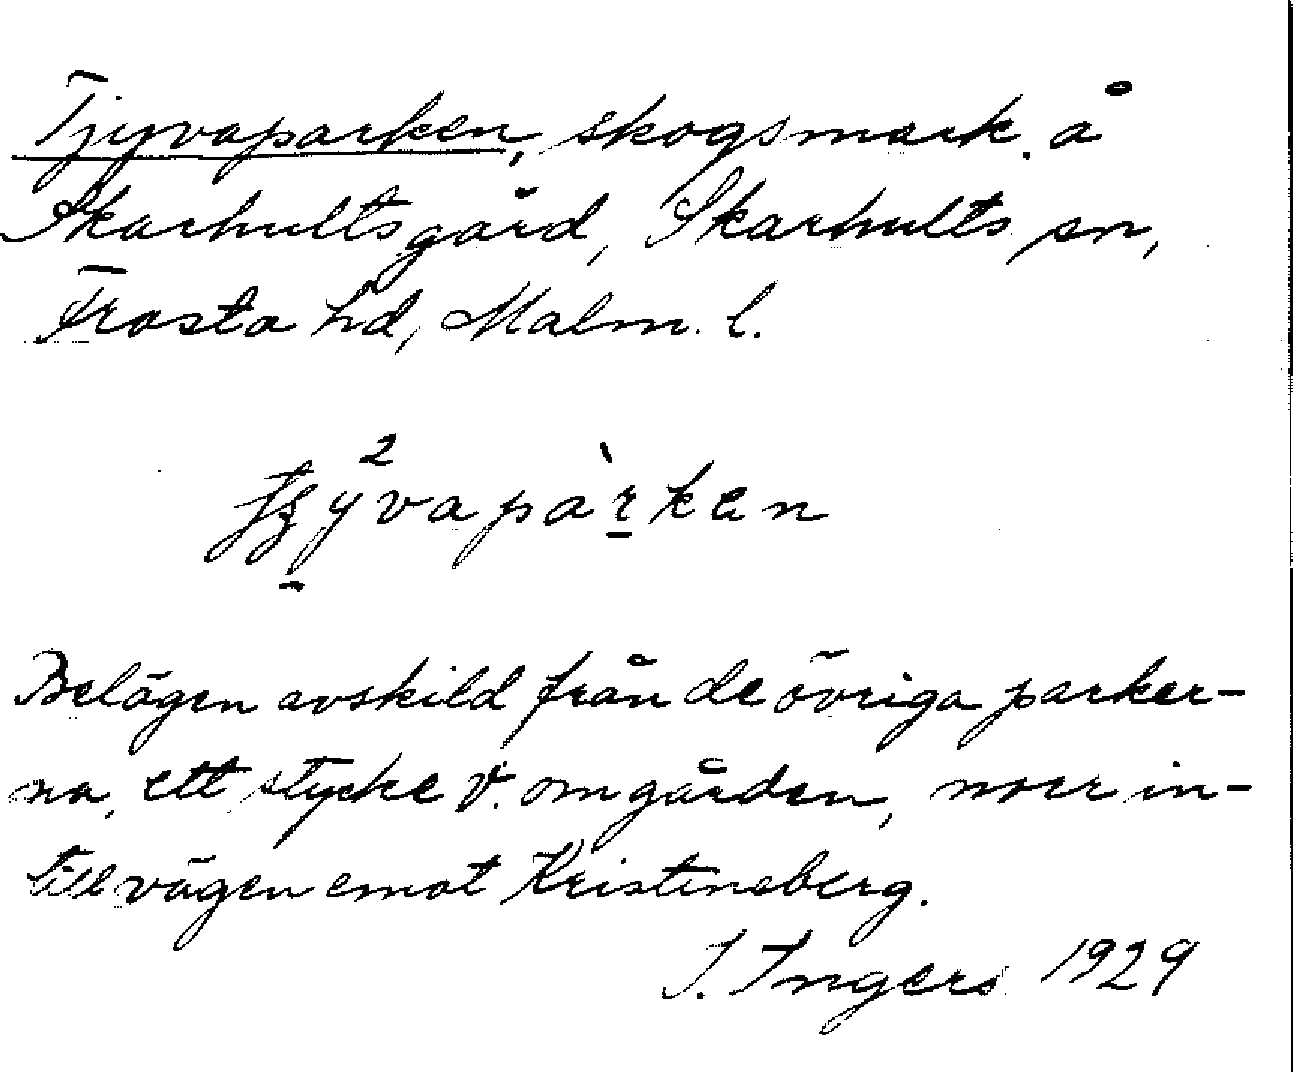 Tjyvaparken, skogsmark å
Skarhultsgård, Skarhults sn,
Frosta hd, Malm. l.
yvapàrken
Belägen avskild från de övriga parker-
na, ett stycke V. om gården, norr in-
till vägen emot Kristineberg.
I. Ingers 1929